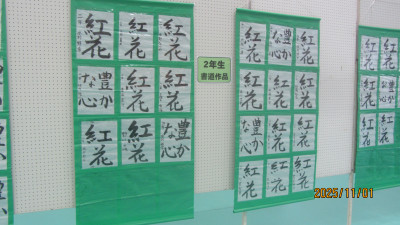 紅花
紅花
紅花
豊かな心
紅花
紅花
紅花
紅花
豊かな心
2年生
書道作品
紅花
豊かな心
紅花
紅花
紅花
紅花
豊かな心
紅花
紅花
紅花
紅花
紅花
紅花
紅花
紅花
紅花
紅花
紅花
2025/11/01